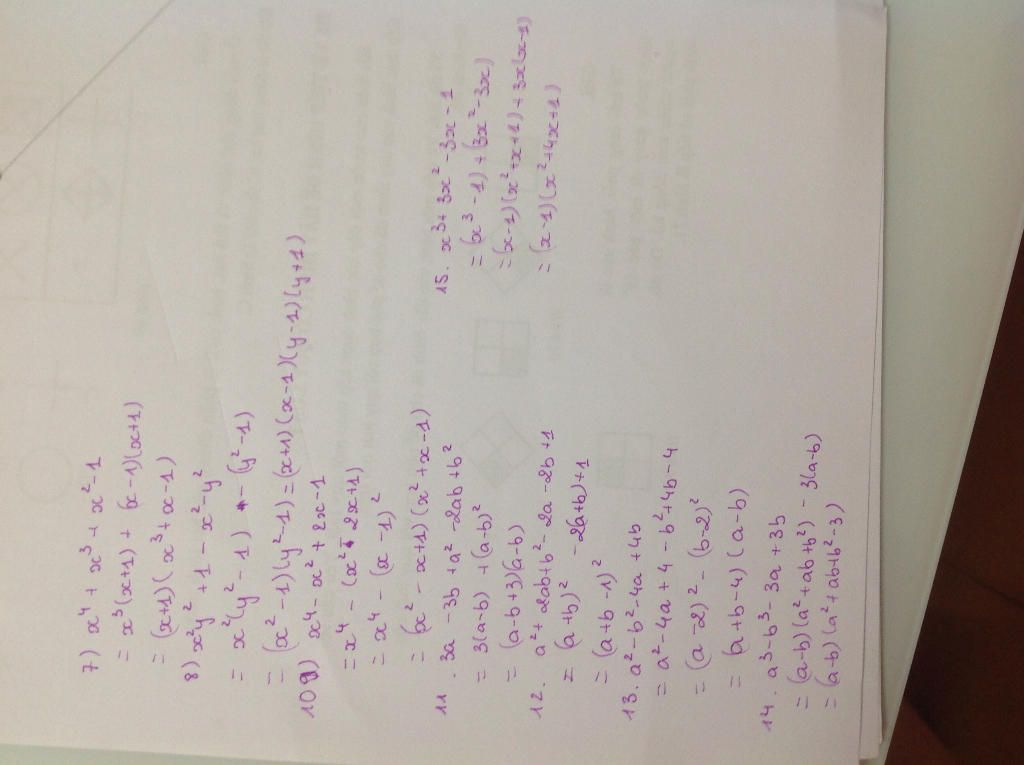 7) x⁴ + x³ + x² - 1
= x³(x+1) + (x-1)(x+1)
= (x+1)(x³+x-1)
8) x²y² + 1 - x² - y²
= x²(y² - 1) - (y² - 1)
= (x² - 1)(y² - 1) = (x+1)(x-1)(y-1)(y+1)
10) x⁴ - x² + 2x - 1
= x⁴ - (x² - 2x + 1)
= x⁴ - (x - 1)²
= (x² - x + 1)(x² + x - 1)
11. 3a - 3b + a² - 2ab + b²
= 3(a-b) + (a-b)²
= (a-b+3)(a-b)
12. a² + 2ab + b² - 2a - 2b + 1
= (a+b)² - 2(a+b) + 1
= (a+b-1)²
13. a² - b² - 4a + 4b
= a² - 4a + 4 - b² + 4b - 4
= (a-2)² - (b-2)²
= (a+b-4)(a-b)
14. a³ - b³ - 3a + 3b
= (a-b)(a² + ab + b²) - 3(a-b)
= (a-b)(a² + ab + b² - 3)
15. x³ + 3x² - 3x - 1
= (x³ - 1) + (3x² - 3x)
= (x-1)(x² + x + 1) + 3x(x-1)
= (x-1)(x² + 4x + 1)